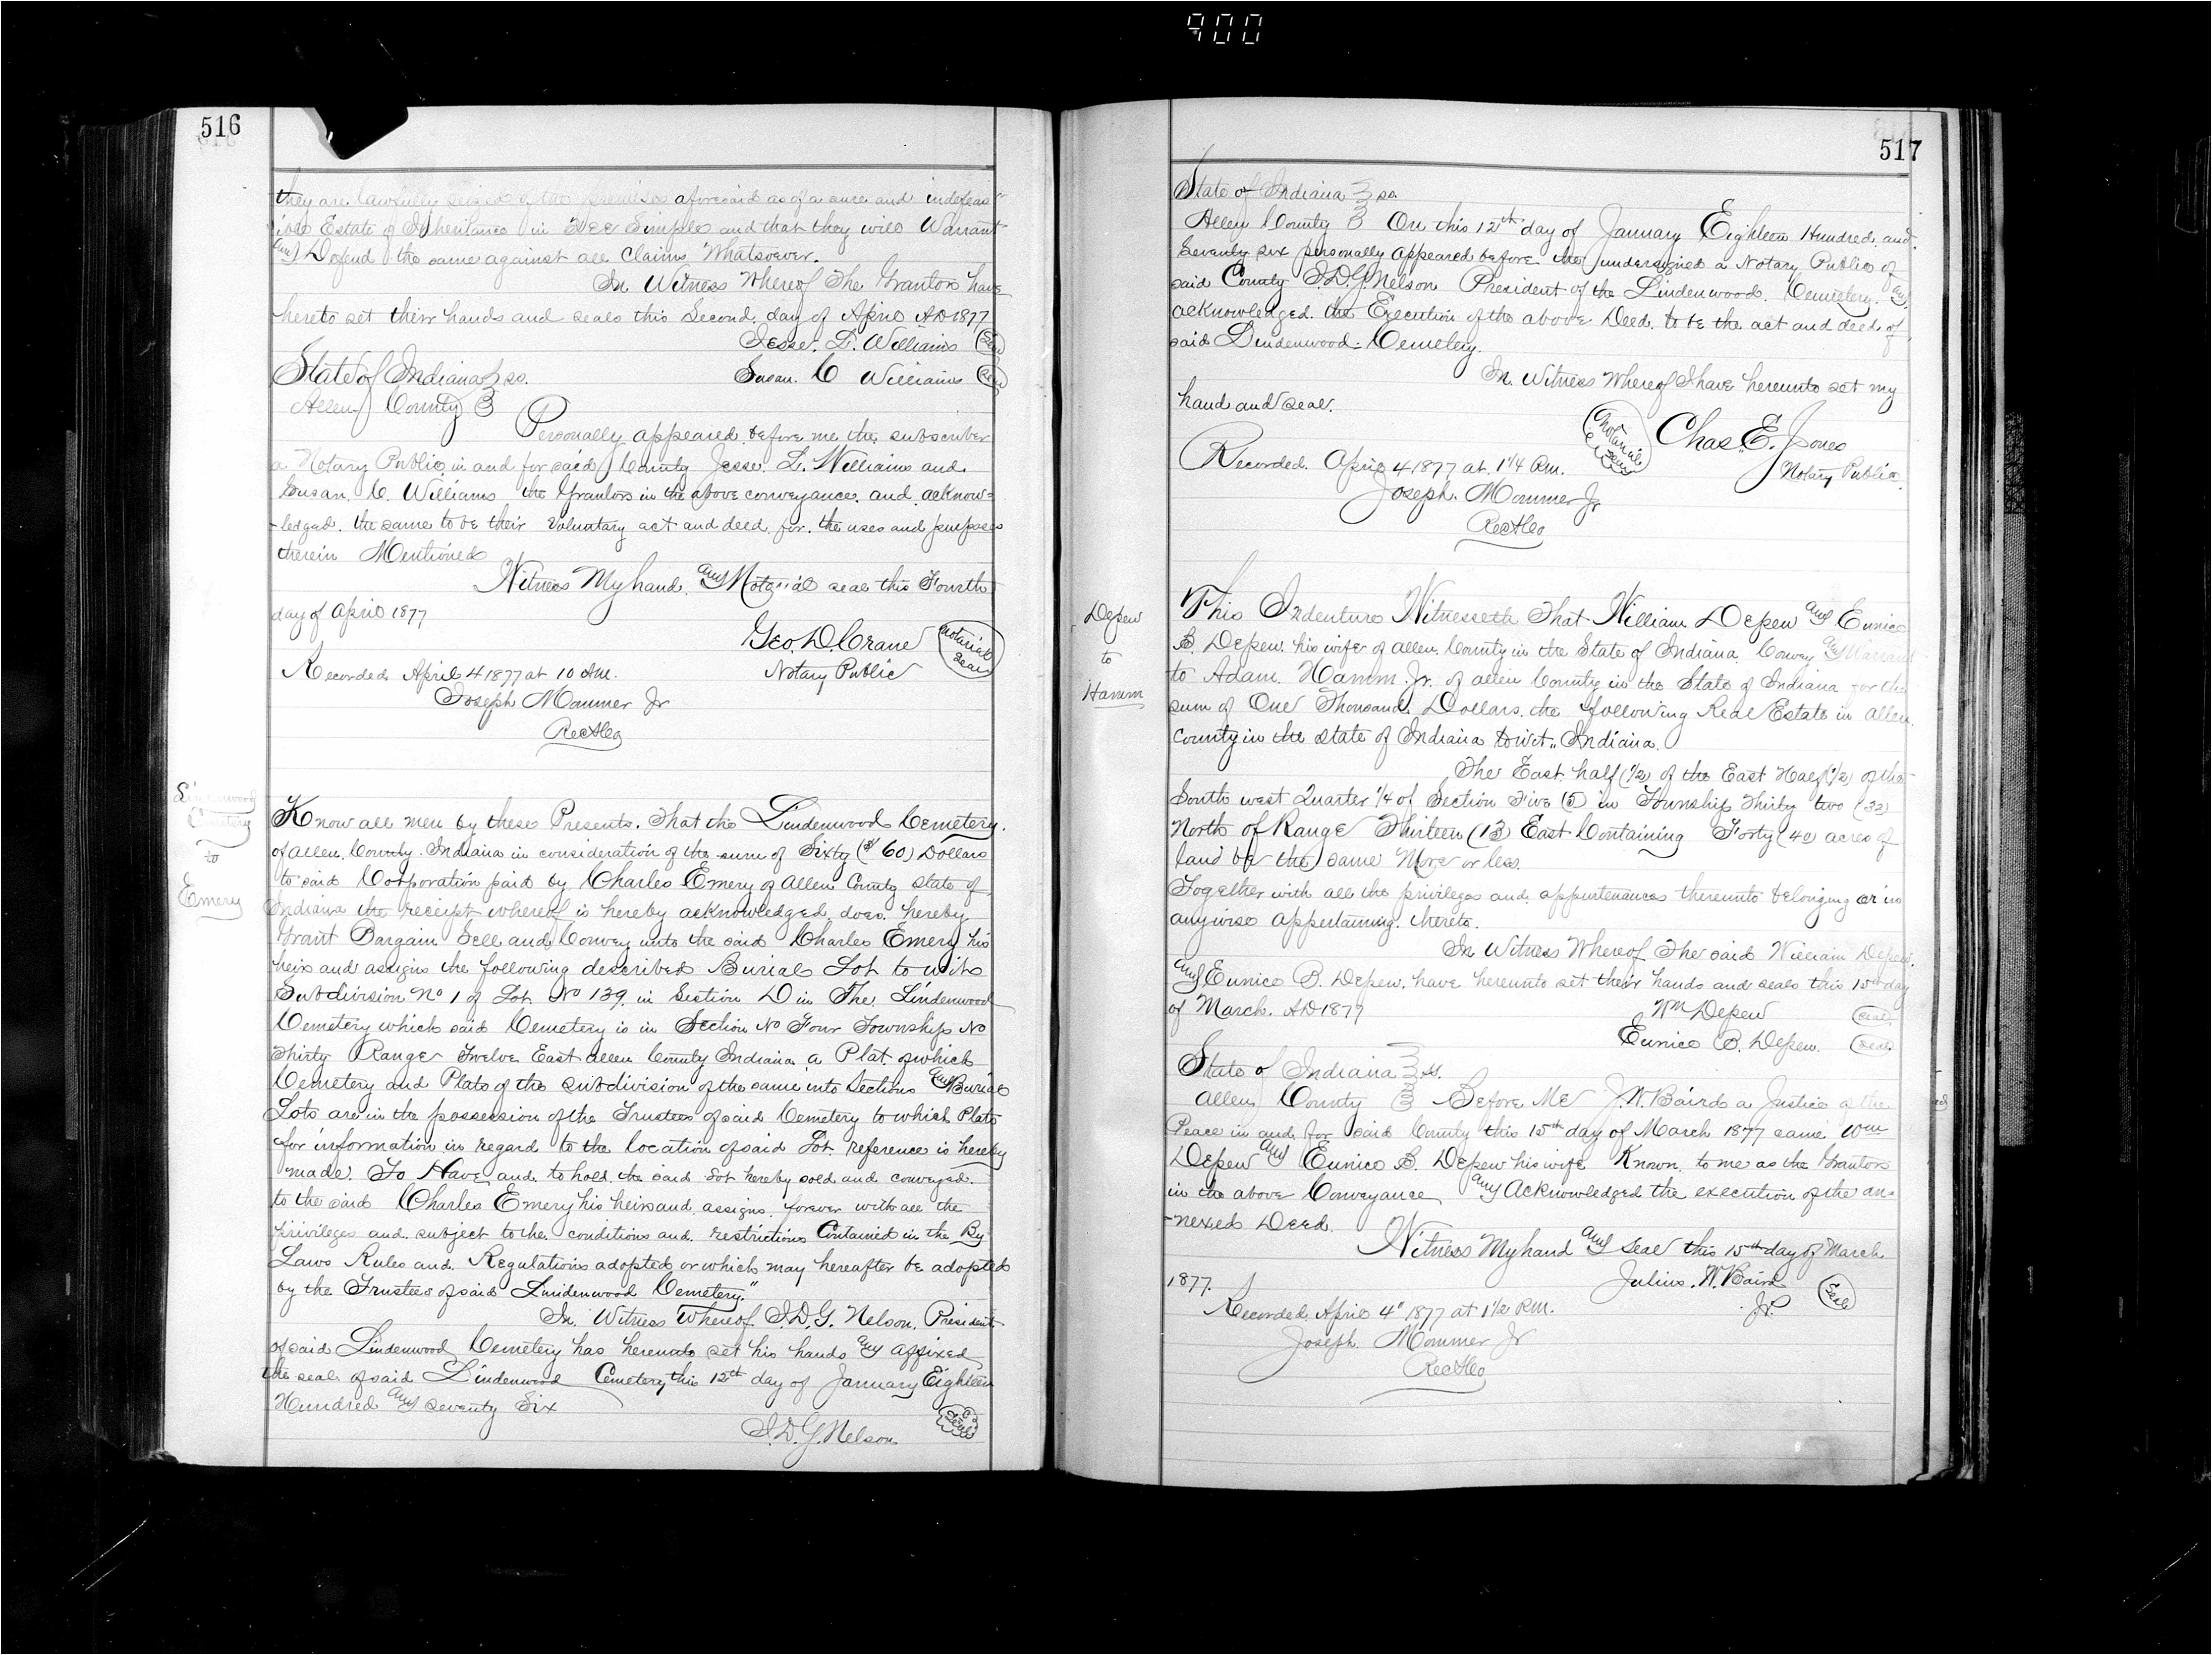 900
516
they are lawfully seized of the premises aforesaid as of a sure and indefeas-
ible Estate of Inheritance in Fee Simple and that they will Warrant
and Defend the same against all Claims Whatsoever.
In Witness Whereof The Grantors have
hereto set their hands and seals this Second day of April AD 1877
Jesse. L. Williams (Seal)
State of Indiana } ss. Susan. C Williams (Seal)
Allen County }
Personally appeared before me the subscriber
a Notary Public in and for said County Jesse. L. Williams and
Susan. C. Williams the Grantors in the above conveyance and acknow-
-ledged. the same to be their Voluntary act and deed for. the uses and purposes
therein Mentioned
Witness My hand and Notarial seal this Fourth
day of April 1877
Geo. D. Crane (Notarial Seal)
Recorded April 4 1877 at 10 AM. Notary Public
Joseph Mommer Jr
RecAlCo
Lindenwood
Cemetery
to
Emery
Know all men by these Presents. That the Lindenwood Cemetery.
of Allen. County. Indiana in consideration of the sum of Sixty ($ 60) Dollars
to said Corporation paid by Charles Emery of Allen County State of
Indiana the receipt whereof is hereby acknowledged. does. hereby
Grant Bargain Sell and Convey unto the said Charles Emery his
heirs and assigns the following described Burial Lot to wit
Subdivision No 1 of Lot. No 139 in Section D in The Lindenwood
Cemetery which said Cemetery is in Section No Four Township No
Thirty Range Twelve East Allen County Indiana a Plat of which
Cemetery and Plats of the subdivision of the same into Sections and Burial
Lots are in the possession of the Trustees of said Cemetery to which Plats
for information in regard to the location of said Lot. reference is hereby
made. To Have and. to hold. the said Lot hereby sold and conveyed.
to the said Charles Emery his heirs and assigns. forever with all the
privileges and. subject to the conditions and restrictions Contained in the By
Laws Rules and. Regulations adopted or which may hereafter be adopted
by the Trustees of said Lindenwood Cemetery."
In. Witness Whereof. I. D. G. Nelson. President
of said Lindenwood Cemetery has hereunto set his hands and affixed
the seal of said Lindenwood Cemetery this 12th day of January Eighteen
Hundred and seventy Six
I. D. G. Nelson (Seal)
517
State of Indiana } ss.
Allen County } On this 12th day of January Eighteen Hundred and.
Seventy six personally appeared before the undersigned a Notary Public of
said County I. D. G. Nelson President of the Lindenwood. Cemetery. and
acknowledged. the Execution of the above Deed. to be the act and deed of
said Lindenwood. Cemetery.
In. Witness Whereof I have hereunto set my
hand and seal.
(Notarial Seal) Chas. E. Jones
Recorded. April 4 1877 at. 1 1/4 P.m. Notary Public
Joseph. Mommer Jr
RecAlCo
Depew
to
Hamm
This Indenture Witnesseth That William Depew and Eunice
B. Depew. his wife of Allen. County in the State of Indiana. Convey and Warrant
to Adam. Hamm. Jr. of Allen County in the State of Indiana for the
sum of One Thousand. Dollars. the following Real Estate in Allen.
County in the State of Indiana towit., Indiana.
The East. half (1/2) of the East Half (1/2) of the
South west Quarter 1/4 of Section Five (5) in Township Thirty two (32)
North of Range Thirteen (13) East Containing Forty (40) acres of
land be the same More or less.
Together with all the privileges and. appurtenances thereunto belonging or in
anywise appertaining. thereto.
In Witness Whereof The said William Depew.
and Eunice B. Depew. have hereunto set their hands and seals this 15th day
of March. AD 1877 Wm Depew (Seal)
Eunice B. Depew. (Seal)
State of Indiana } ss.
Allen County } Before Me J. W. Baird a Justice of the
Peace in and. for said County this 15th day of March 1877 came Wm
Depew and Eunice B. Depew his wife Known. to me as the Grantors
in the above Conveyance and Acknowledged the execution of the an-
-nexed Deed.
Witness My hand and Seal this 15th day of March
1877. Julius. W. Baird (Seal)
Recorded. April 4" 1877 at 1 1/2 P.M. J.P.
Joseph. Mommer Jr
RecAlCo